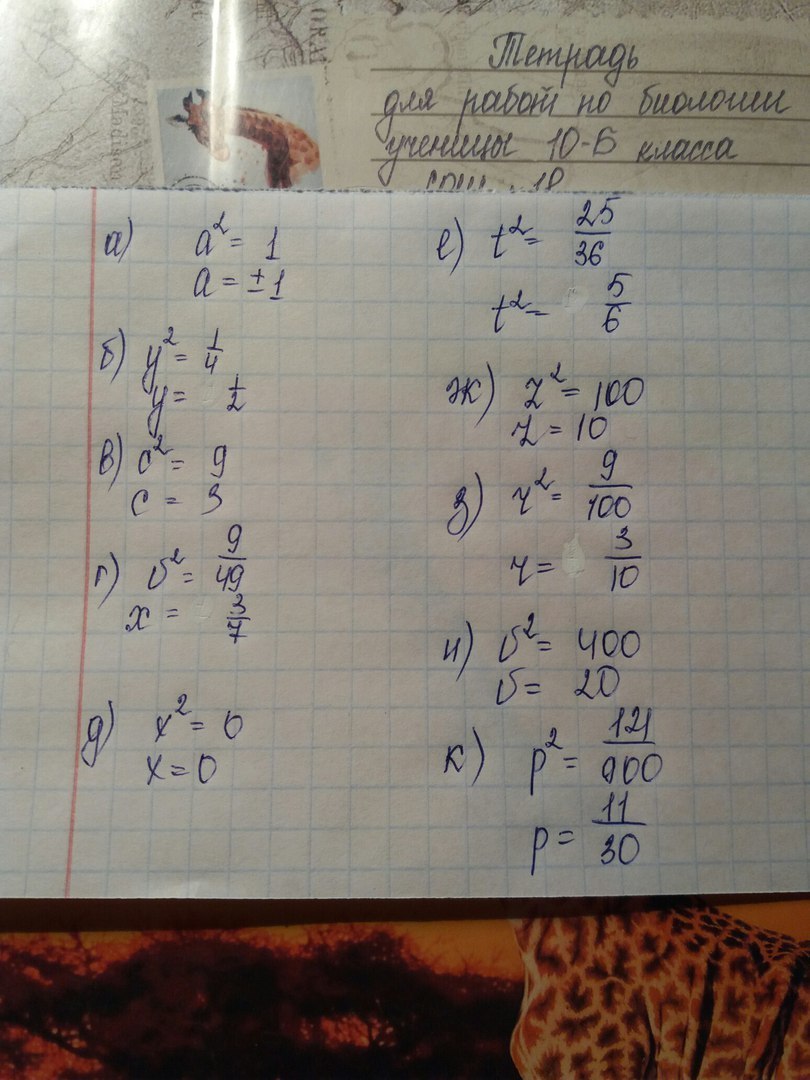 Тетрадь
для работ по биологии
ученицы 10-Б класса
а) a² = 1
a = ±1
б) y² = 1/4
y = 1/2
в) c² = 9
c = 3
г) v² = 9/49
x = 3/7
д) x² = 0
x = 0
е) t² = 25/36
t² = 5/6
ж) z² = 100
z = 10
з) r² = 9/100
r = 3/10
и) v² = 400
v = 20
к) p² = 121/900
p = 11/30